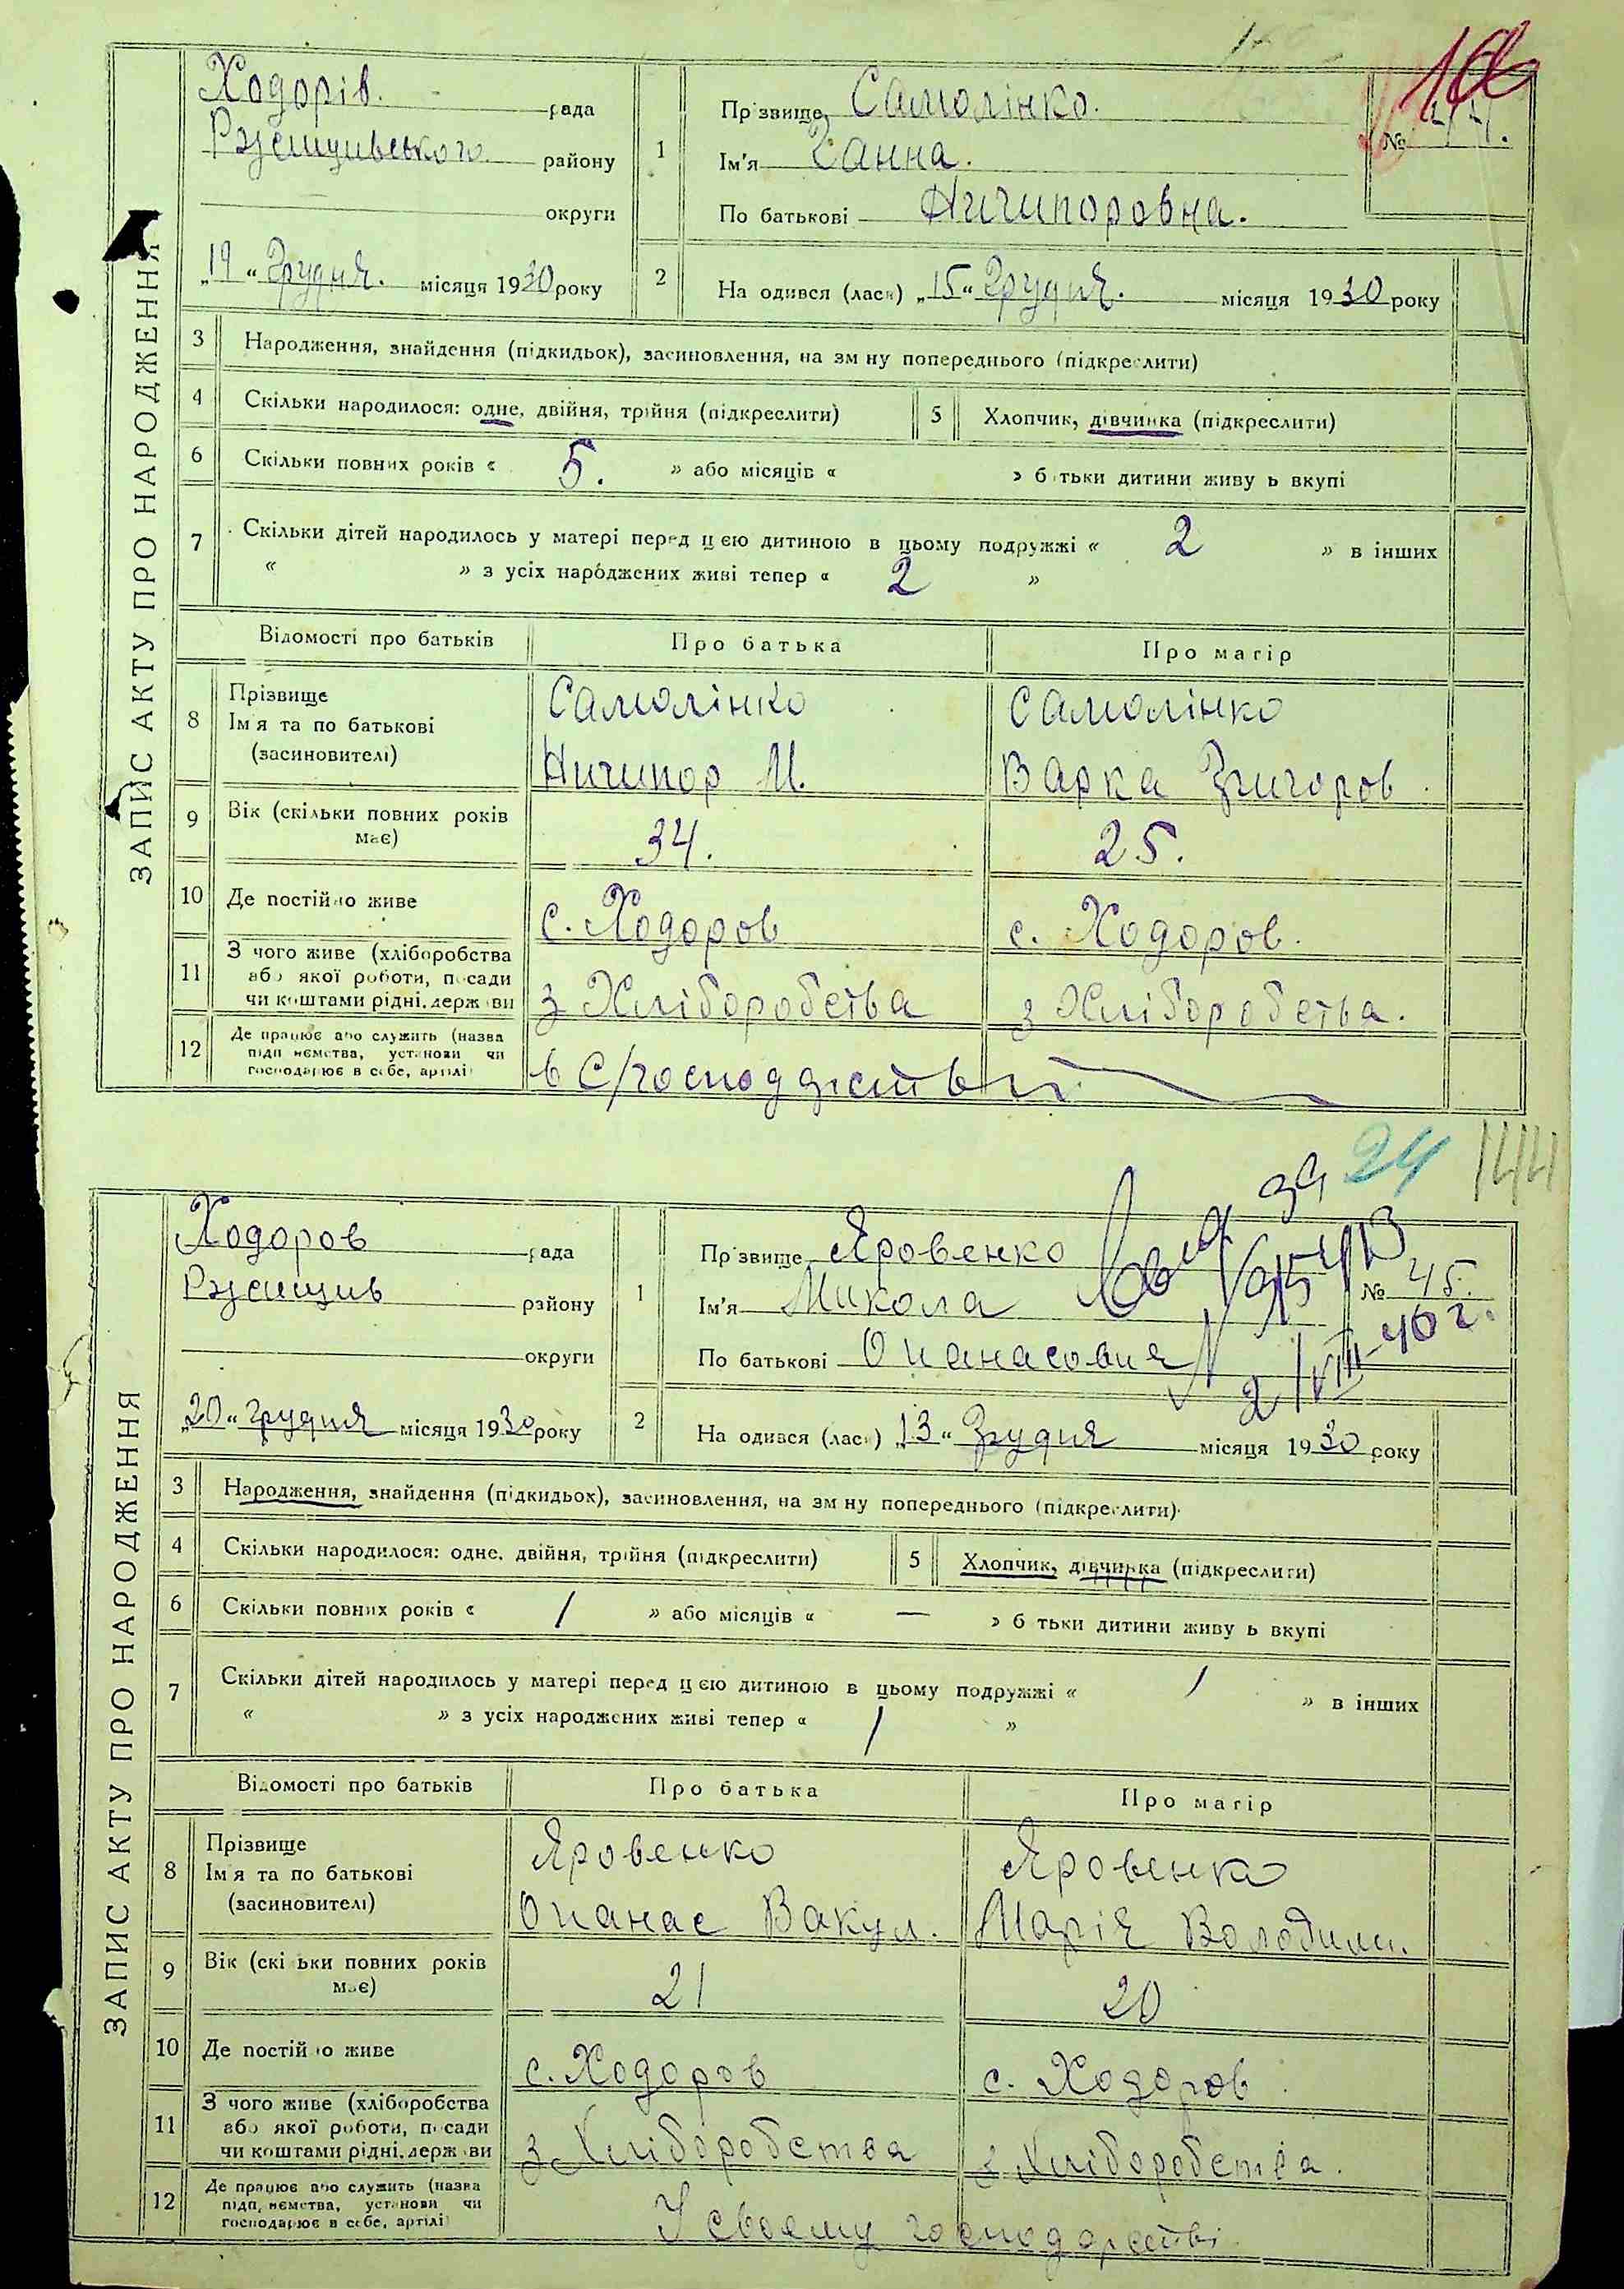 ЗАПИС АКТУ ПРО НАРОДЖЕННЯ
Ходорів. рада
Ржищивського району
округи
„19“ Грудня. місяця 1930 року
1
Пр звище Самолінко.
Ім'я Ганна.
По батькові Ничипоровна.
№ 44.
2
На одився (лась) „15“ Грудня. місяця 1930 року
3 Народження, знайдення (підкидьок), засиновлення, на зм ну попереднього (підкреслити)
4 Скільки народилося: одне, двійня, трійня (підкреслити) 5 Хлопчик, дівчинка (підкреслити)
6 Скільки повних років « 5. » або місяців « » б тьки дитини живу ь вкупі
7 Скільки дітей народилось у матері перед ц єю дитиною в цьому подружжі « 2 » в інших
« » з усіх народжених живі тепер « 2 »
Відомості про батьків Про батька Про матір
8 Прізвище Самолінко Самолінко
Ім я та по батькові
(засиновителі) Ничипор М. Варка Григоров.
9 Вік (скільки повних років має) 34. 25.
10 Де постійно живе с. Ходоров с. Ходоров.
11 З чого живе (хліборобства
або якої роботи, посади
чи коштами рідні, держ ви з Хліборобства з Хліборобства.
12 Де працює або служить (назва
підп иємства, установи чи
господарює в себе, артілі
24 144
ЗАПИС АКТУ ПРО НАРОДЖЕННЯ
Ходоров рада
Ржищив району
округи
„20“ Грудня місяця 1930 року
1
Пр звище Яровенко
Ім'я Микола
По батькові Опанасовия
№ 45.
2/VIII-46 г.
2
На одився (лась) „13“ Грудня місяця 1930 року
3 Народження, знайдення (підкидьок), засиновлення, на зм ну попереднього (підкреслити)
4 Скільки народилося: одне, двійня, трійня (підкреслити) 5 Хлопчик, дівчинка (підкреслити)
6 Скільки повних років « 1 » або місяців « — » б тьки дитини живу ь вкупі
7 Скільки дітей народилось у матері перед ц єю дитиною в цьому подружжі « 1 » в інших
« » з усіх народжених живі тепер « 1 »
Відомості про батьків Про батька Про матір
8 Прізвище Яровенко Яровенко
Ім я та по батькові
(засиновителі) Опанас Вакул. Марія Володим.
9 Вік (скі ьки повних років має) 21 20
10 Де постій о живе с. Ходоров с. Ходоров.
11 З чого живе (хліборобства
або якої роботи, посади
чи коштами рідні, держ ви з Хліборобства з Хліборобства.
12 Де працює або служить (назва
підп иємства, установи чи
господарює в себе, артілі У своему господарстві